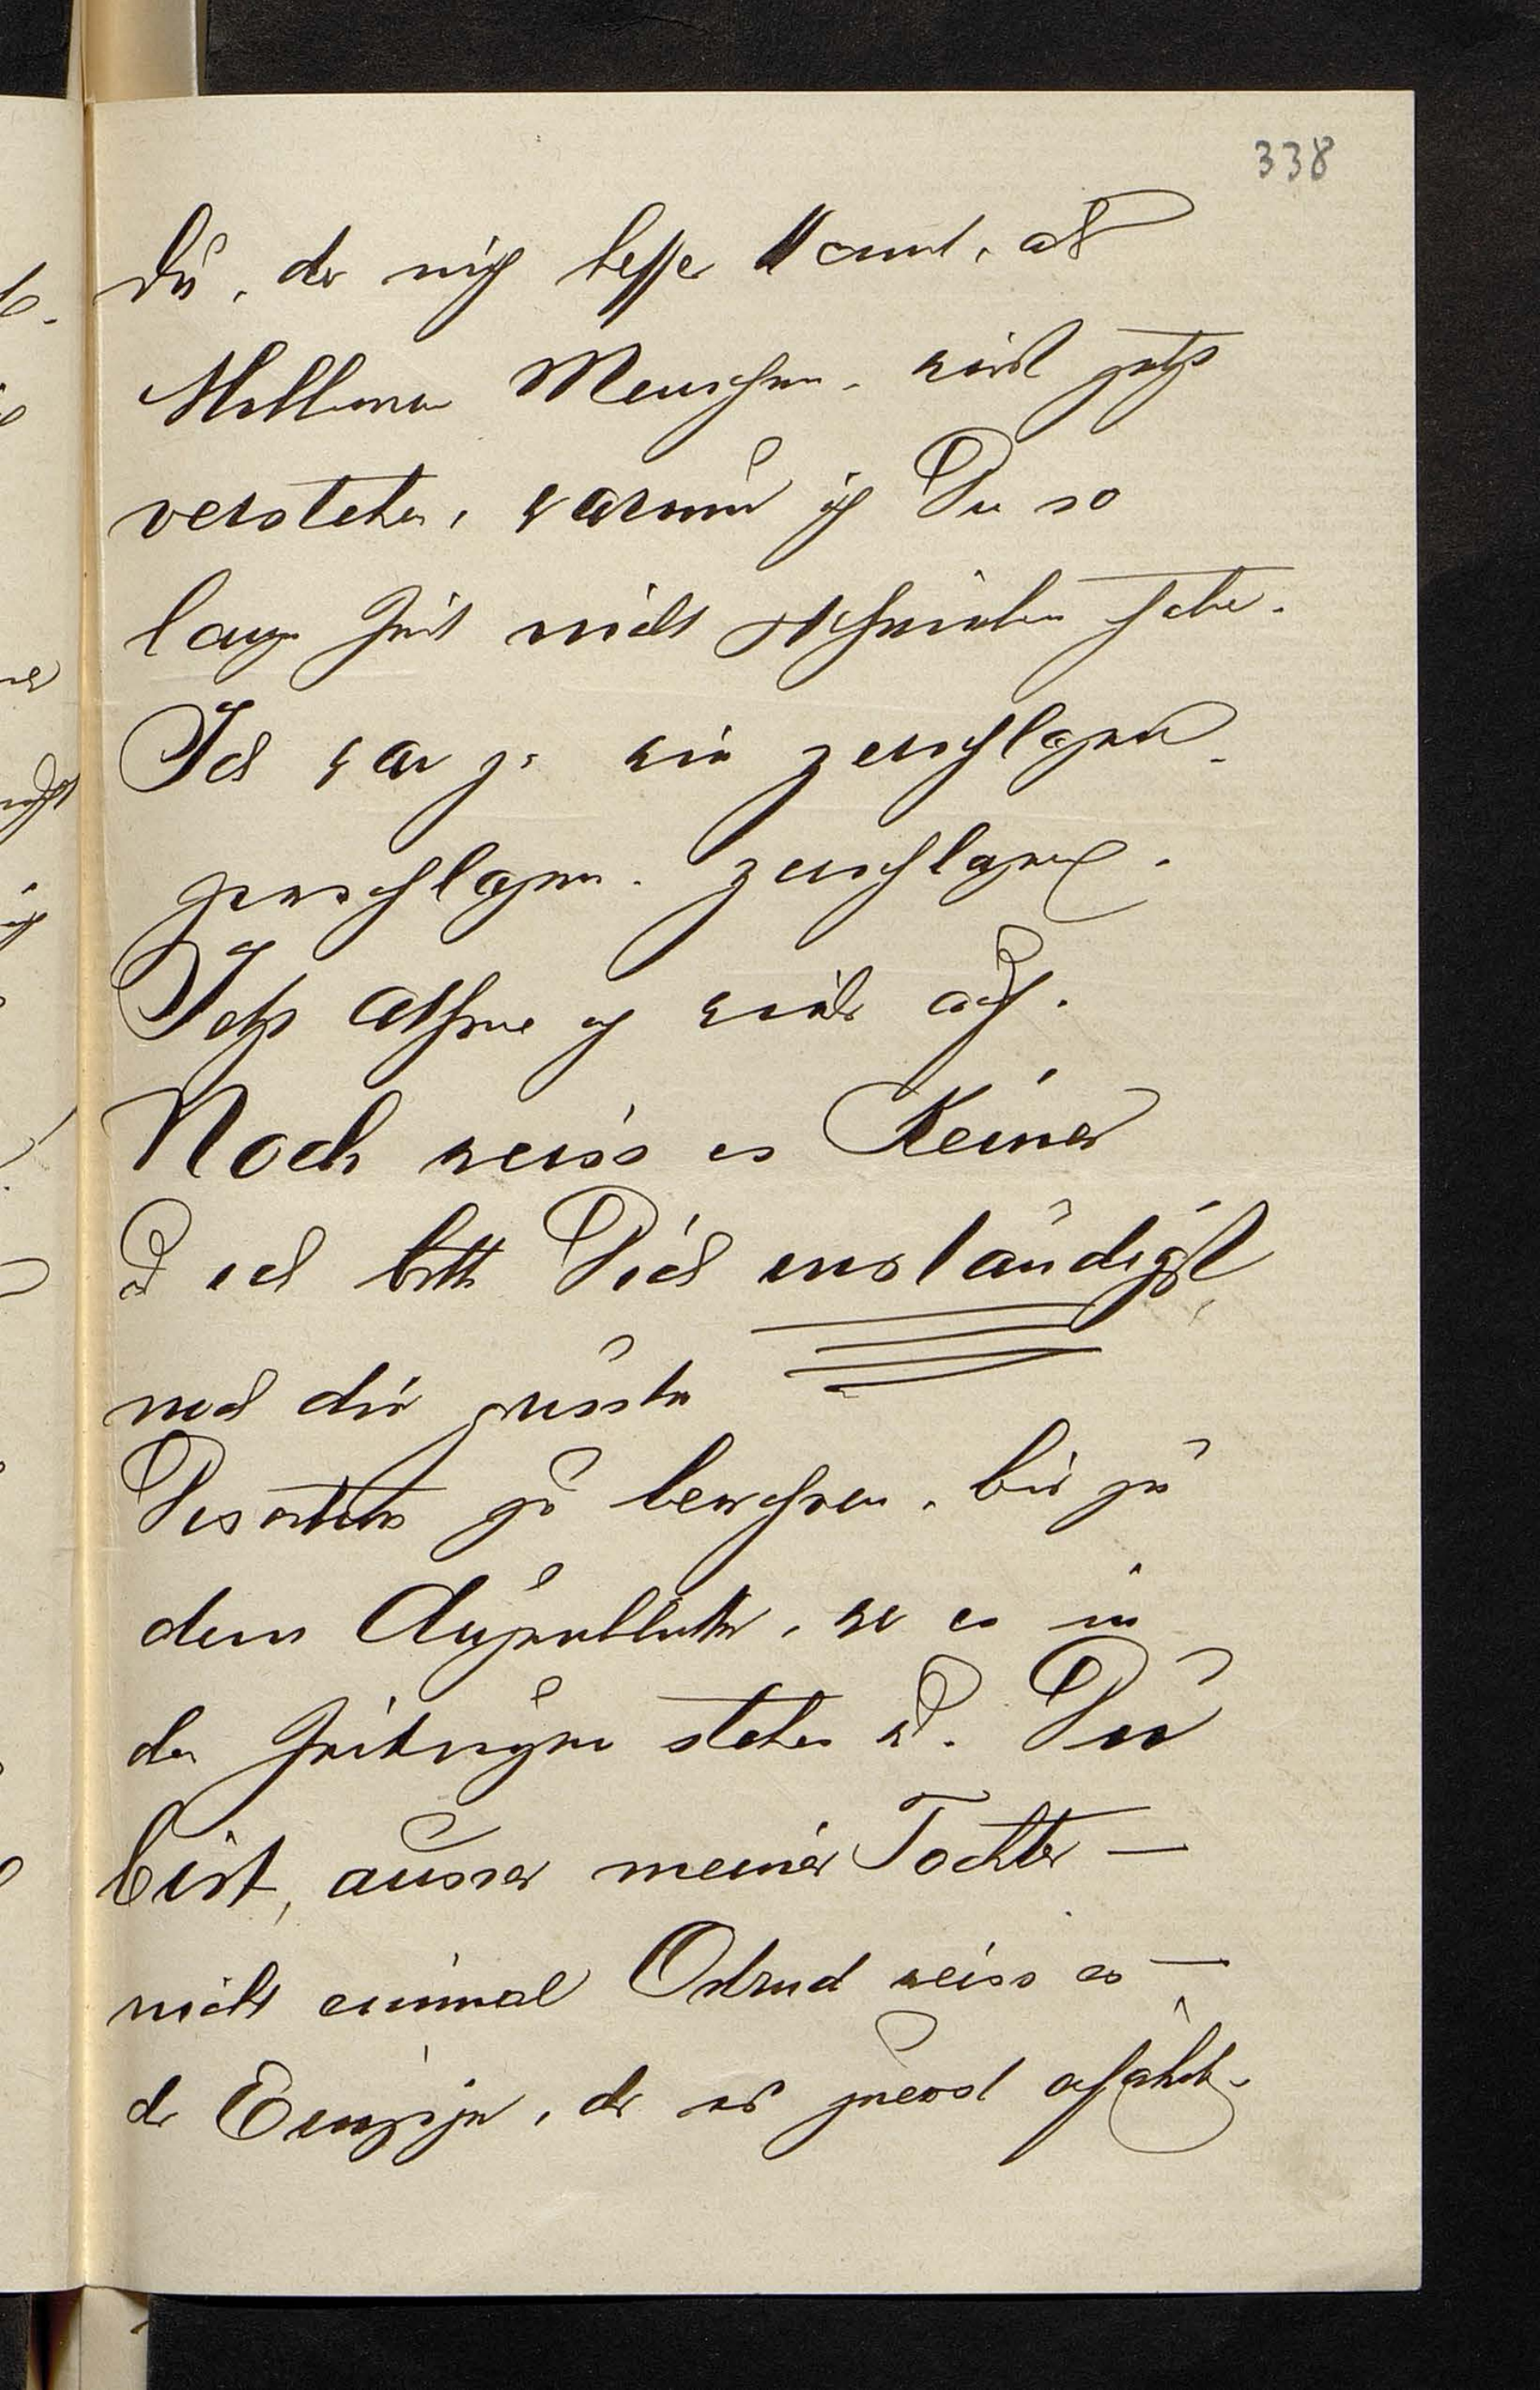 338
Du, der mich besser kennt, als
Millionen Menschen, wirst jetzt
verstehen, warum ich Dir so
lange Zeit nicht geschrieben habe.
Ich war ja wie zerschlagen,
zerschlagen, zerschlagen.
Jetzt athme ich wieder auf.
Noch weiss es Keiner
u ich bitte Dich inständigst
noch die grösste
Discretion zu bewahren, bis zu
dem Augenblicke, wo es in
den Zeitungen stehen wird. Du
bist, ausser meiner Tochter –
nicht einmal Ortrud weiss es –
der Einzige, der es zuerst erfährt.